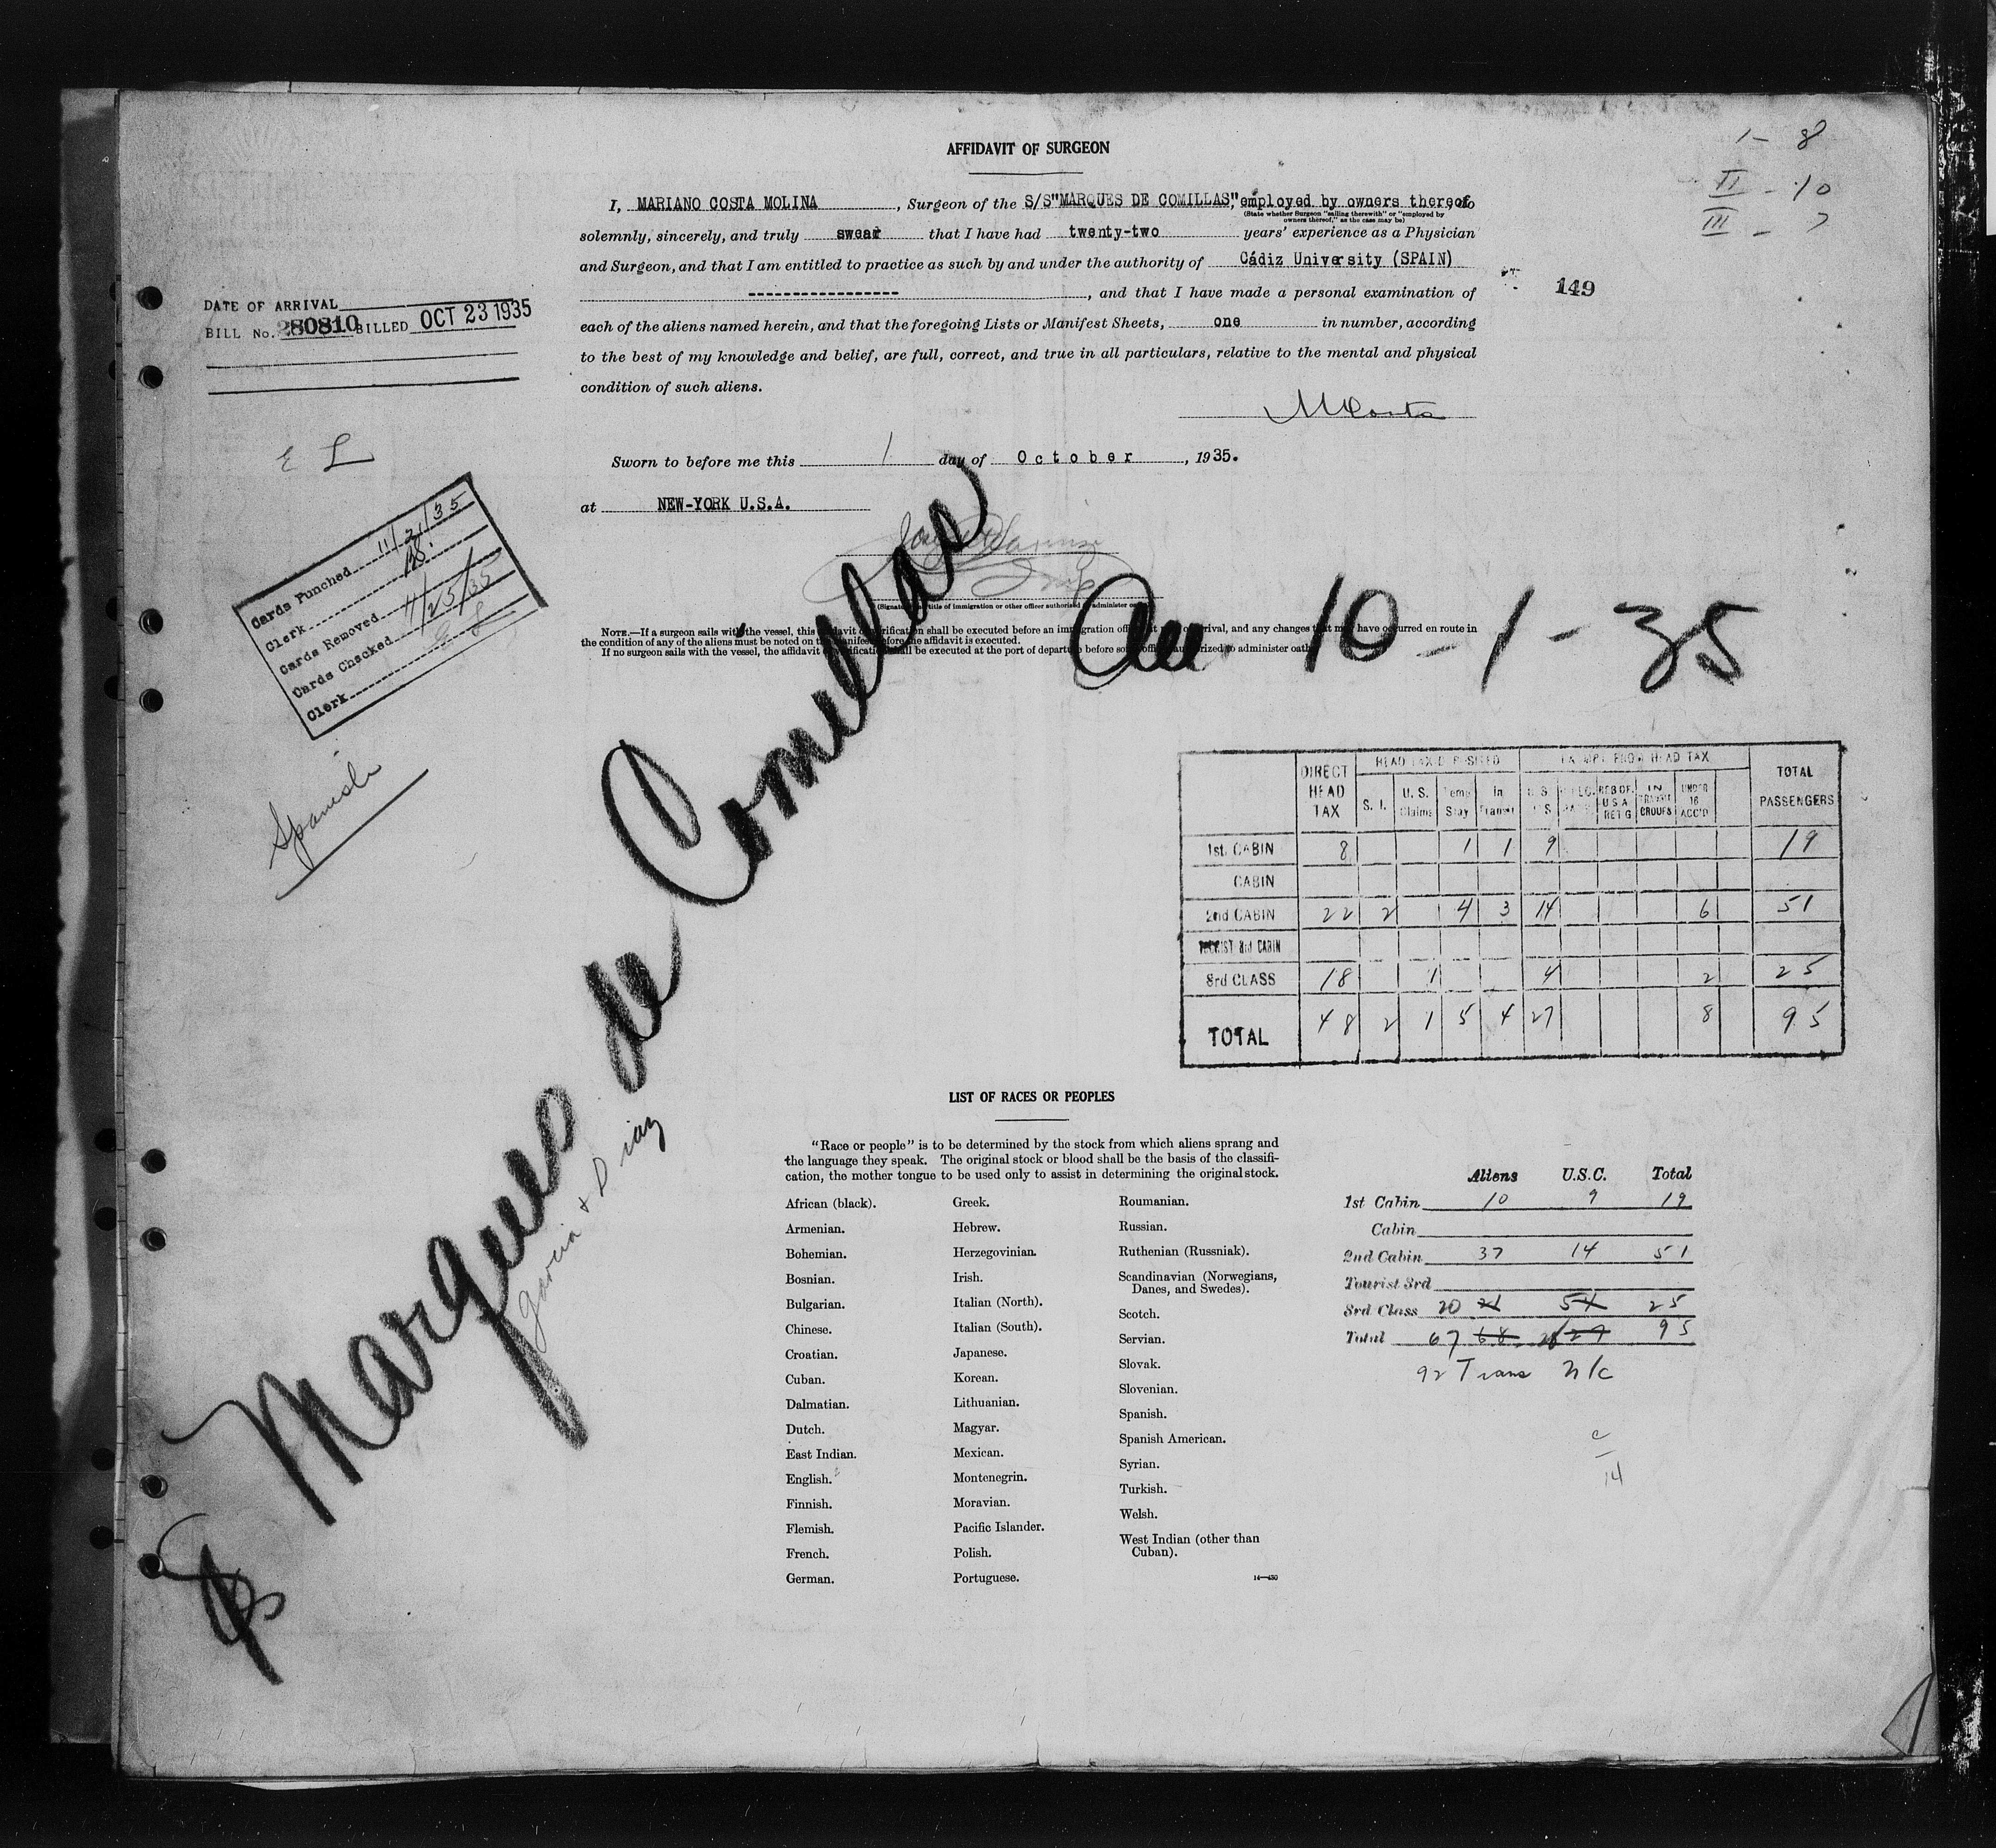 1 - 8
II - 10
III - 7
AFFIDAVIT OF SURGEON
I, MARIANO COSTA MOLINA, Surgeon of the S/S"MARQUES DE COMILLAS", employed by owners thereof do
(State whether Surgeon "sailing therewith" or "employed by
owners thereof," as the case may be)
solemnly, sincerely, and truly swear that I have had twenty-two years' experience as a Physician
and Surgeon, and that I am entitled to practice as such by and under the authority of Cádiz University (SPAIN)
-----------------, and that I have made a personal examination of
149
each of the aliens named herein, and that the foregoing Lists or Manifest Sheets, one in number, according
to the best of my knowledge and belief, are full, correct, and true in all particulars, relative to the mental and physical
condition of such aliens.
MCosta
Sworn to before me this 1 day of October, 1935.
at NEW-YORK U.S.A.
(Signature and title of immigration or other officer authorized to administer oaths)
NOTE.—If a surgeon sails with the vessel, this affidavit of verification shall be executed before an immigration officer at port of arrival, and any changes that may have occurred en route in
the condition of any of the aliens must be noted on the manifest before the affidavit is executed.
If no surgeon sails with the vessel, the affidavit of verification shall be executed at the port of departure before some officer authorized to administer oaths.
DATE OF ARRIVAL
BILL No. 280810 BILLED OCT 23 1935
E L
Cards Punched 11/21/35
Clerk
Cards Removed
Cards Checked 11/25/35
Clerk
Spanish
SS Marques de Comillas
Garcia & Diaz
Arr 10-1-35
DIRECT HEAD TAX | HEAD TAX DEPOSITED | EXEMPT FROM HEAD TAX | TOTAL PASSENGERS
S. I. | U. S. Claims | Temp Stay | In Transit | IN TRANSIT GROUPS | UNDER 16 ACC'D
1st. CABIN 8 1 1 9 19
CABIN
2nd CABIN 22 2 4 3 14 6 51
TOURIST 3rd CABIN
3rd CLASS 18 1 4 2 25
TOTAL 48 2 1 5 4 27 8 95
LIST OF RACES OR PEOPLES
"Race or people" is to be determined by the stock from which aliens sprang and
the language they speak. The original stock or blood shall be the basis of the classifi-
cation, the mother tongue to be used only to assist in determining the original stock.
African (black).
Armenian.
Bohemian.
Bosnian.
Bulgarian.
Chinese.
Croatian.
Cuban.
Dalmatian.
Dutch.
East Indian.
English.
Finnish.
Flemish.
French.
German.
Greek.
Hebrew.
Herzegovinian.
Irish.
Italian (North).
Italian (South).
Japanese.
Korean.
Lithuanian.
Magyar.
Mexican.
Montenegrin.
Moravian.
Pacific Islander.
Polish.
Portuguese.
Roumanian.
Russian.
Ruthenian (Russniak).
Scandinavian (Norwegians,
Danes, and Swedes).
Scotch.
Servian.
Slovak.
Slovenian.
Spanish.
Spanish American.
Syrian.
Turkish.
Welsh.
West Indian (other than
Cuban).
14—430
Aliens U.S.C. Total
1st Cabin 10 9 19
Cabin
2nd Cabin 37 14 51
Tourist 3rd
3rd Class 20 21 5 4 25
Total 67 68 28 27 95
92 Trans N/C
c
14